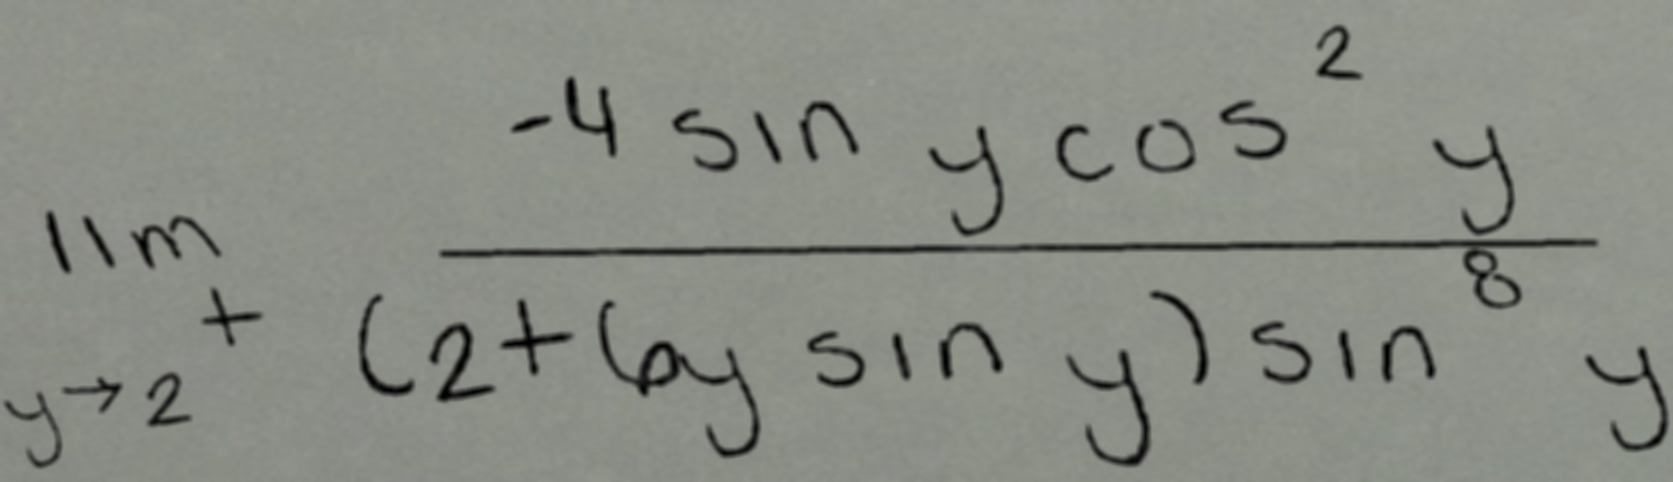 lim y→2⁺ (-4 sin y cos² y) / ((2+6y sin y) sin⁸ y)